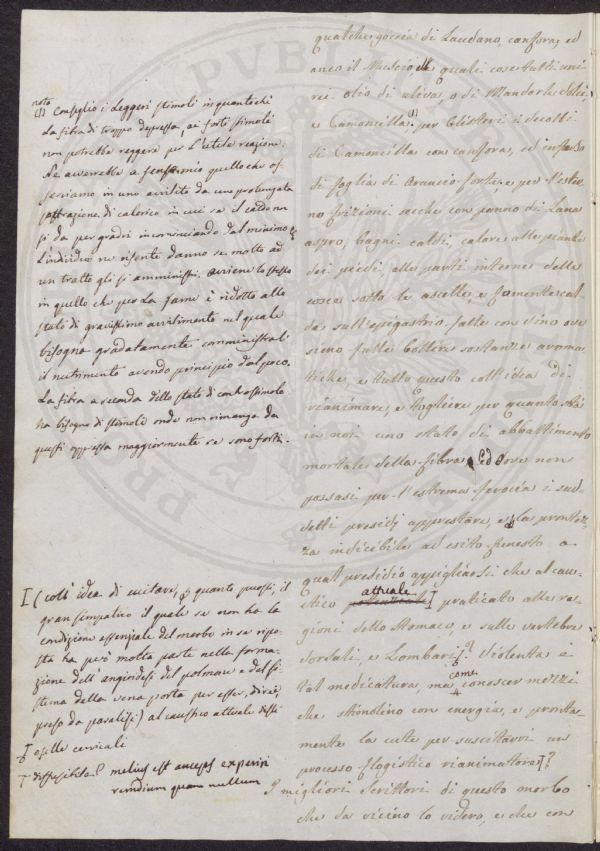 qualche goccia di Laudano, canfora, ed
anco il Muschio, le quali cose tutti unirei
olio di uliva, o di Mandorle dolci,
e Camomilla (1) per Clisteri i decotti
di Camomilla con canfora, ed infuso
di foglia di Arancio forte, e per l'esterno
frizioni secche con panno di Lana
aspro, bagni caldi, calore alle piante
dei piedi, alle parti interne delle
cosce sotto le ascelle, e fomente calde
sull'epigastrio fatte con vino ove
sieno fatte bollire sostanze aromatiche,
e tutto questo coll'idea di
rianimare, e togliere per quanto sta
in noi uno stato di abbattimento
mortale della fibra. Ed ove non
possasi per l'estrema ferocia i suddetti
presidj apprestare, e la prontezza
indicibile ad esito funesto a
qual presidio appigliarsi che al caustico
attuale praticato alle regioni
dello Stomaco, e sulle vertebre
dorsali, e Lombari? Violenta è
tal medicatura, ma come conoscer mezzi
che stimolino con energia, e prontamente
la cute per suscitarvi un
processo flogistico rianimatore?
I migliori Scrittori di questo morbo
che da vicino lo videro, e che con
nota
(1) Consiglio i Leggeri stimoli in quantochè
La fibra di troppo depressa, ai forti stimoli
non potrebbe reggere per L'utile reazione.
Ne avverrebbe a quello che osserviamo
in uno avvilito da una prolungata
sottrazione di calorico in cui se il caldo non
si da per gradi incominciando dal minimo
L'individuo ne risente danno se molto ad
un tratto gli si amministri. avviene lo stesso
in quello che per La fame è ridotto allo
stato di gravissimo avvilimento nel quale
bisogna gradatamente somministrargli
il nutrimento avendo principio dal poco.
La fibra a seconda dello stato di
ha bisogno di stimoli onde non rimanga da
questi oppressa maggiormente se sono forti.
(coll'idea di eccitare, per quanto puossi, il
gran simpatico il quale se non ha la
condizione essenziale del morbo in se riposta
ha però molta parte nella formazione
dell' del polmone e del sistema
della vena porta per esser, direi,
preso da paralisi) al caustico attuale
o sulle cervicali
diffusibile? melius est anceps experiri
remedium quam nullum